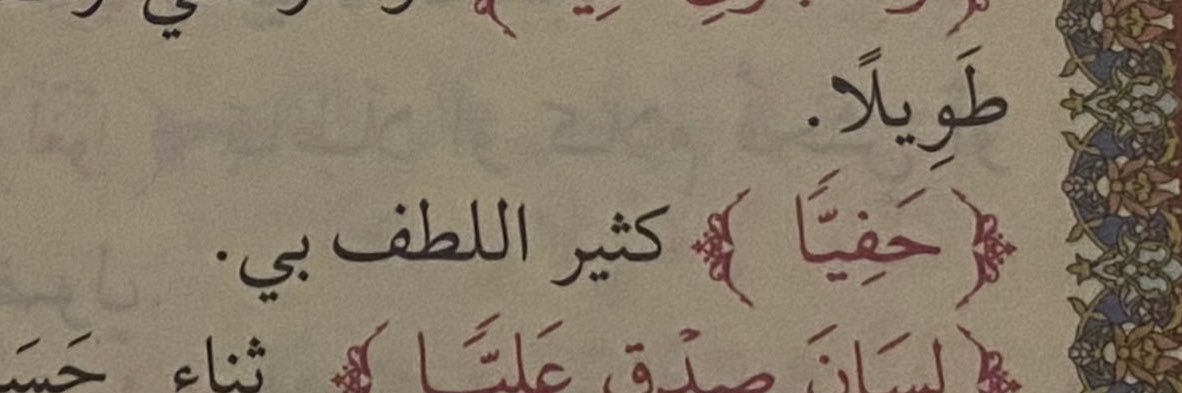 طَوِيلًا.
﴿حَفِيًّا﴾ كثير اللطف بي.
﴿لِسَانَ صِدْقٍ عَلِيًّا﴾ ثناء حَسَ